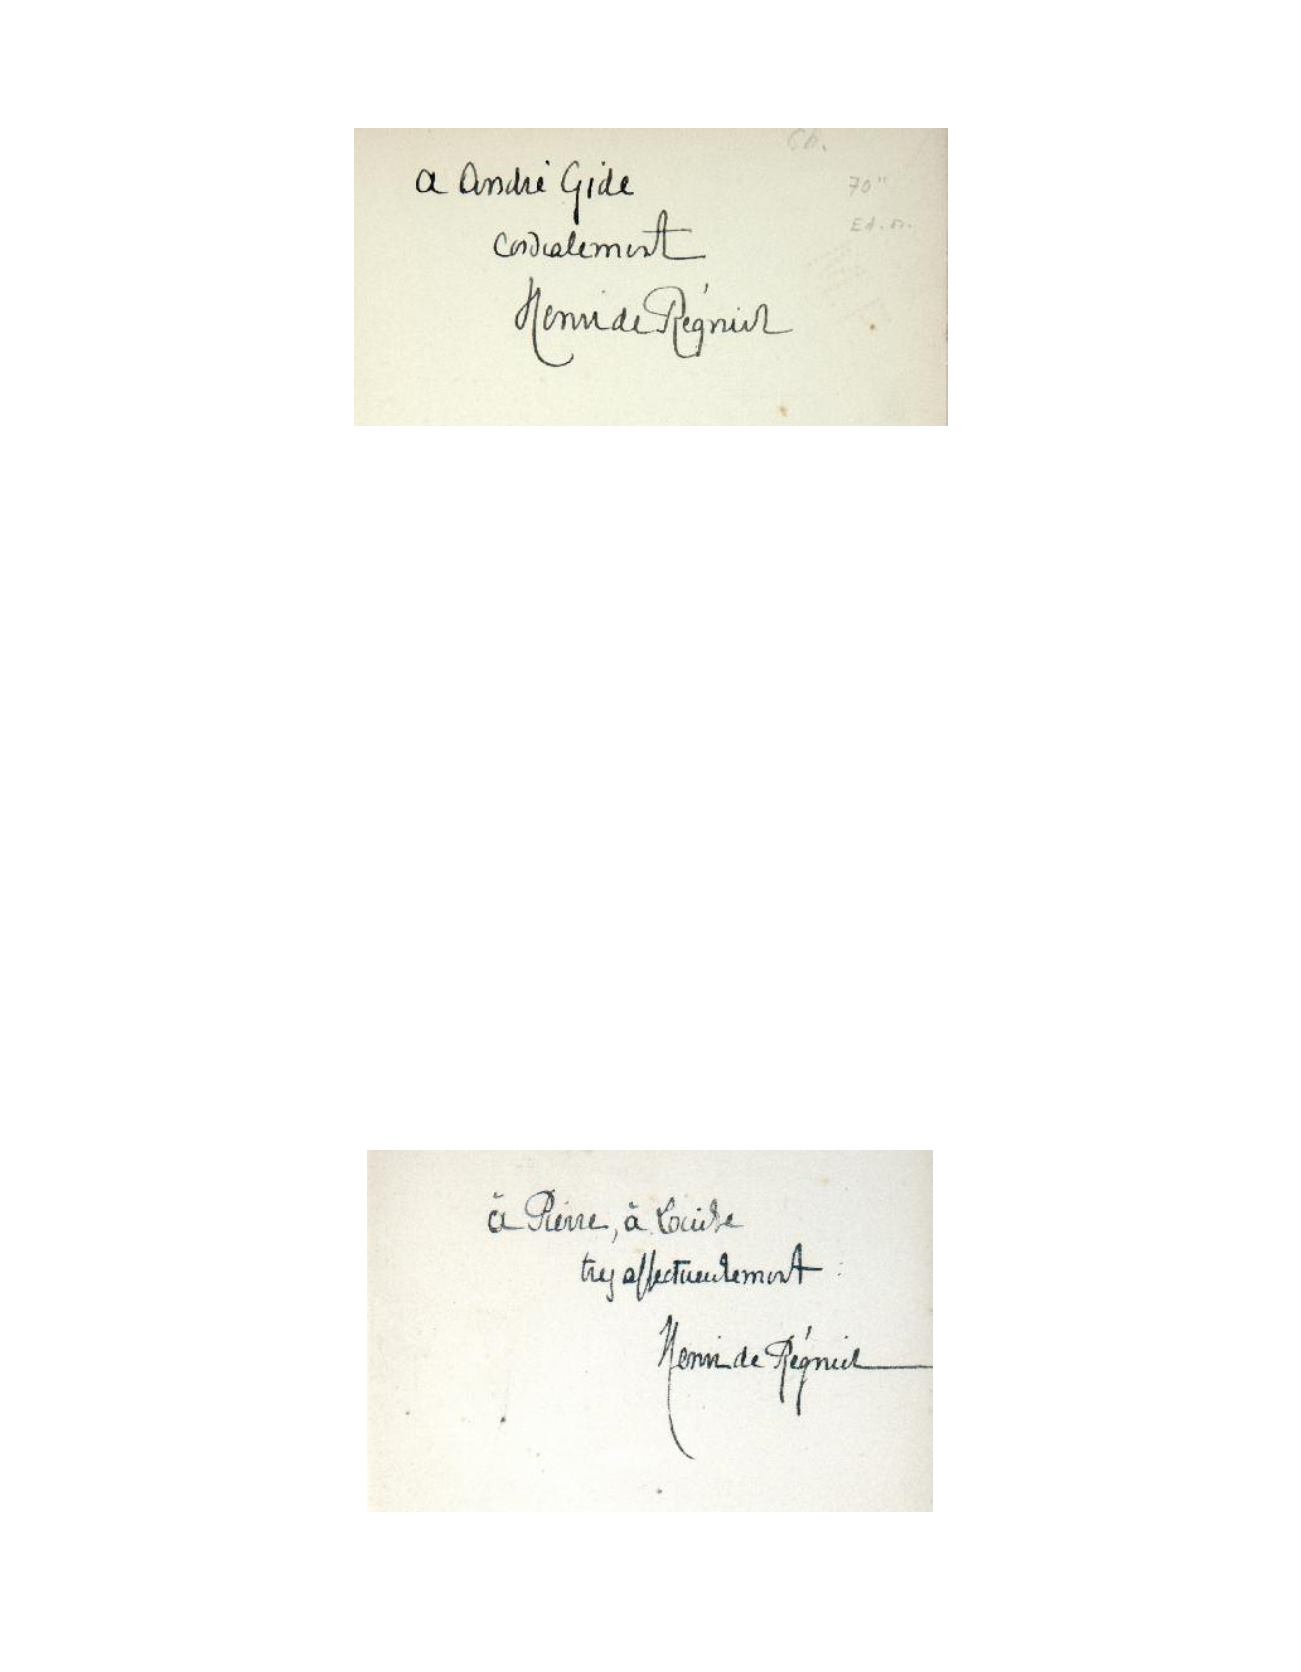 a André Gide
cordialement
Henri de Régnier
70"
Ed. or.
à Pierre, à Louise
très affectueusement
Henri de Régnier